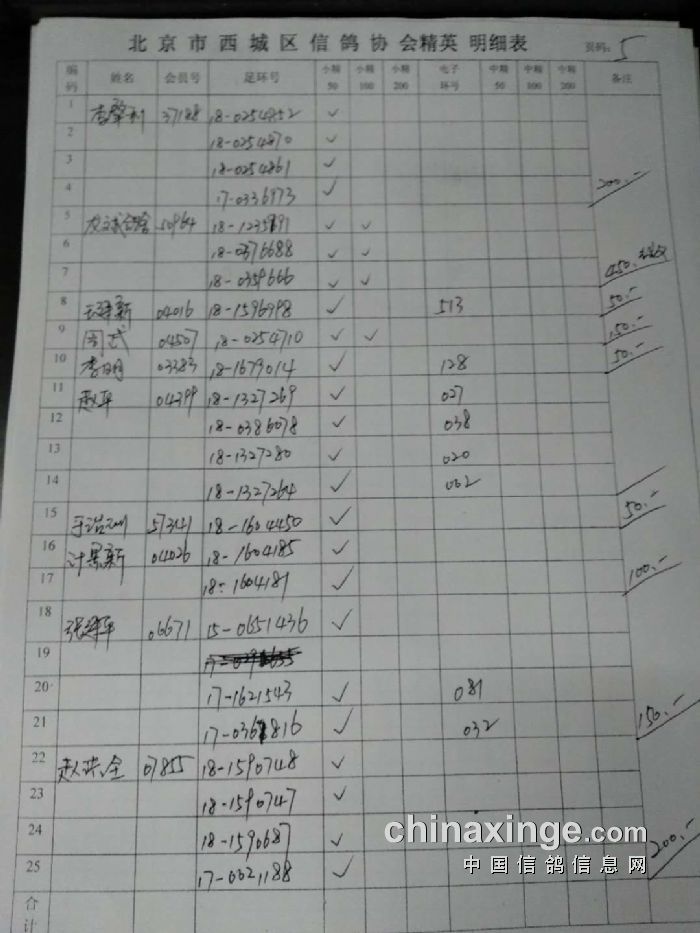 北京市西城区信鸽协会精英 明细表 页码: 5
编码 姓名 会员号 足环号 小精50 小精100 小精200 电子环号 中精50 中精100 中精200 备注
1 37188 18-0254852 ✓
2 18-0254870 ✓
3 18-0254861 ✓
4 17-0336973 ✓ 200.-
5 50964 ✓ ✓
6 18-0376688 ✓ ✓
7 18-0359666 ✓ ✓ 450.
8 04016 18-1596998 ✓ 513 50.-
9 周武 04507 18-0254710 ✓ ✓ 150.-
10 李明 03383 18-1679014 ✓ 128 50.-
11 赵军 04399 18-1327269 ✓ 027
12 18-0386078 ✓ 038
13 18-1327280 ✓ 020
14 18-1327264 ✓ 002
15 57341 18-1604450 ✓ 50.-
16 计景新 04026 18-1604185 ✓
17 18-1604181 ✓ 100.-
18 张建军 06671 15-0651436 ✓
19
20 17-1621543 ✓ 081
21 ✓ 032 150.-
22 07855 18-1590748 ✓
23 18-1590747 ✓
24 18-1590687 ✓
25 17-0021188 ✓ 200.-
合计
chinaxinge.com
中国信鸽信息网